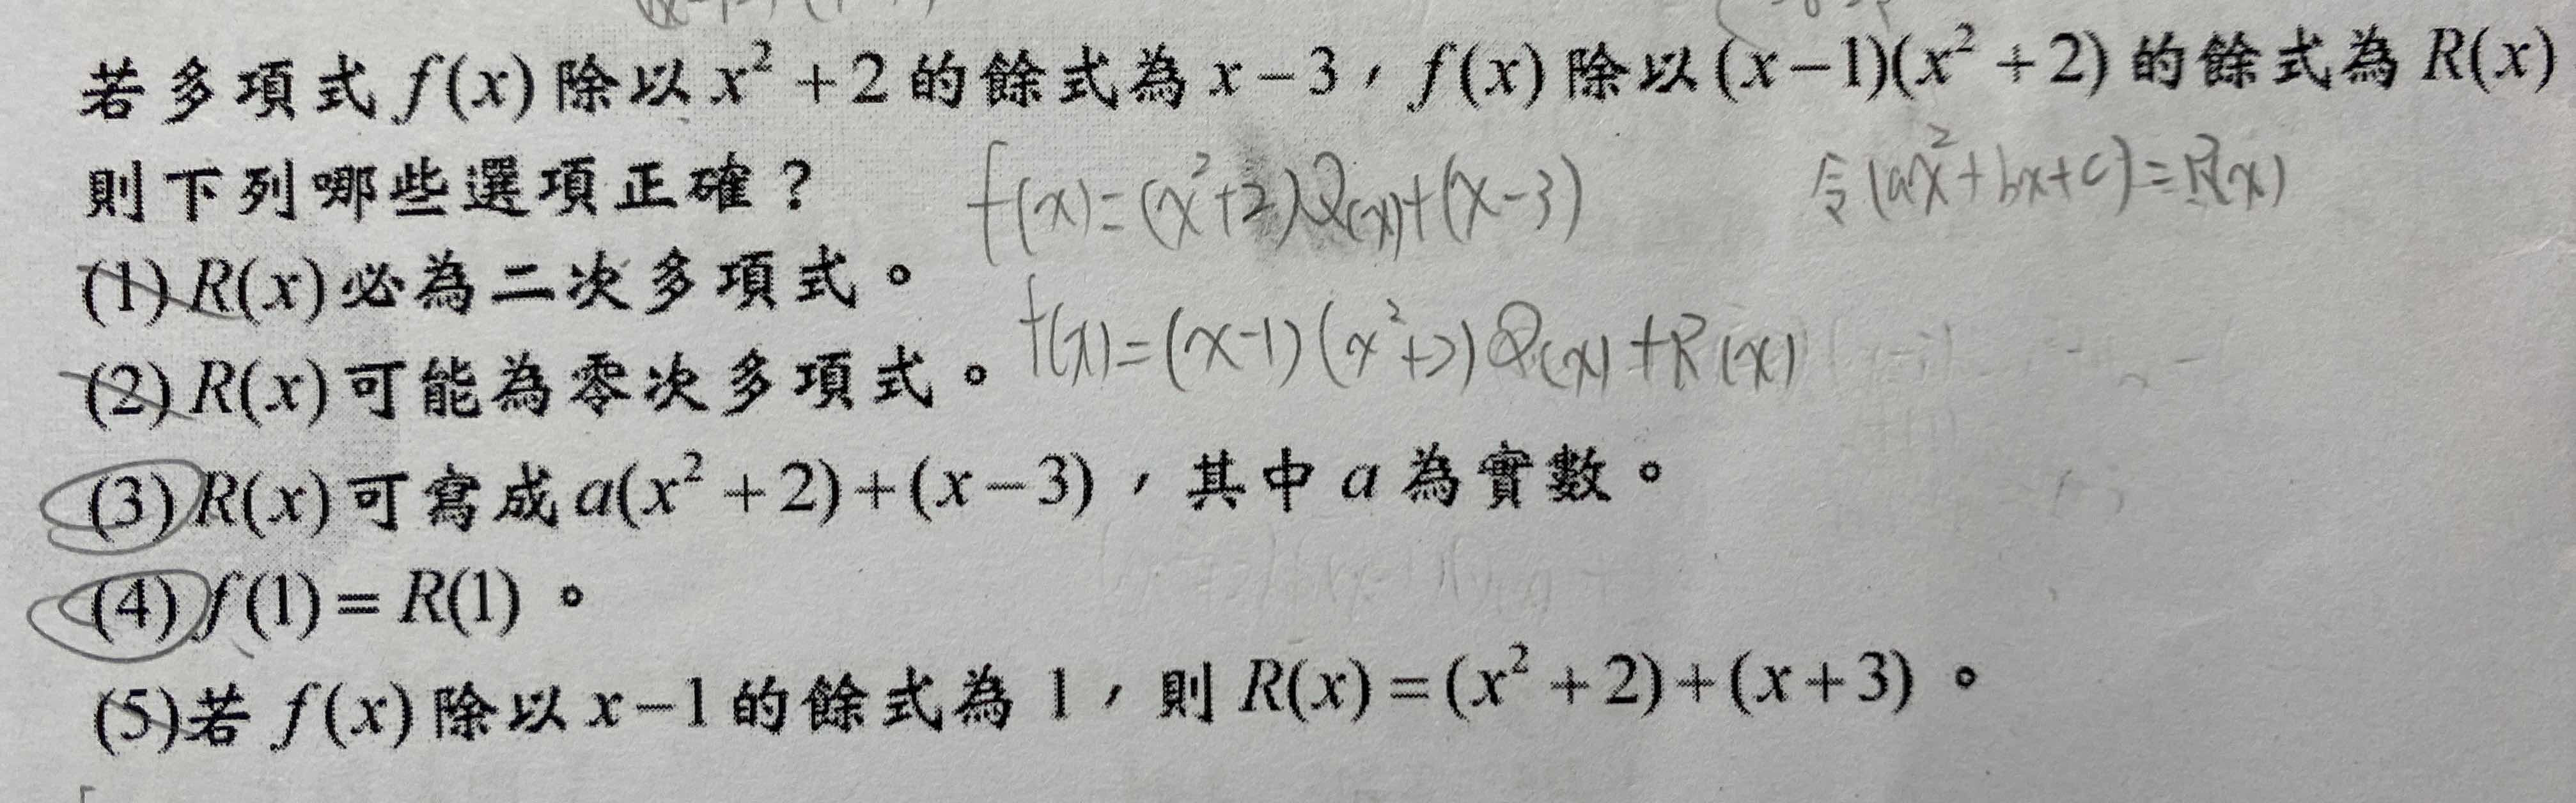 若多項式 f(x) 除以 x² + 2 的餘式為 x − 3，f(x) 除以 (x−1)(x² + 2) 的餘式為 R(x)
則下列哪些選項正確？
f(x)=(x²+2)Q(x)+(x-3)
令(ax²+bx+c)=R(x)
(1) R(x) 必為二次多項式。
f(x)=(x-1)(x²+2)Q(x)+R(x)
(2) R(x) 可能為零次多項式。
(3) R(x) 可寫成 a(x² + 2) + (x − 3)，其中 a 為實數。
(4) f(1) = R(1)。
(5)若 f(x) 除以 x−1 的餘式為 1，則 R(x) = (x² + 2) + (x + 3)。